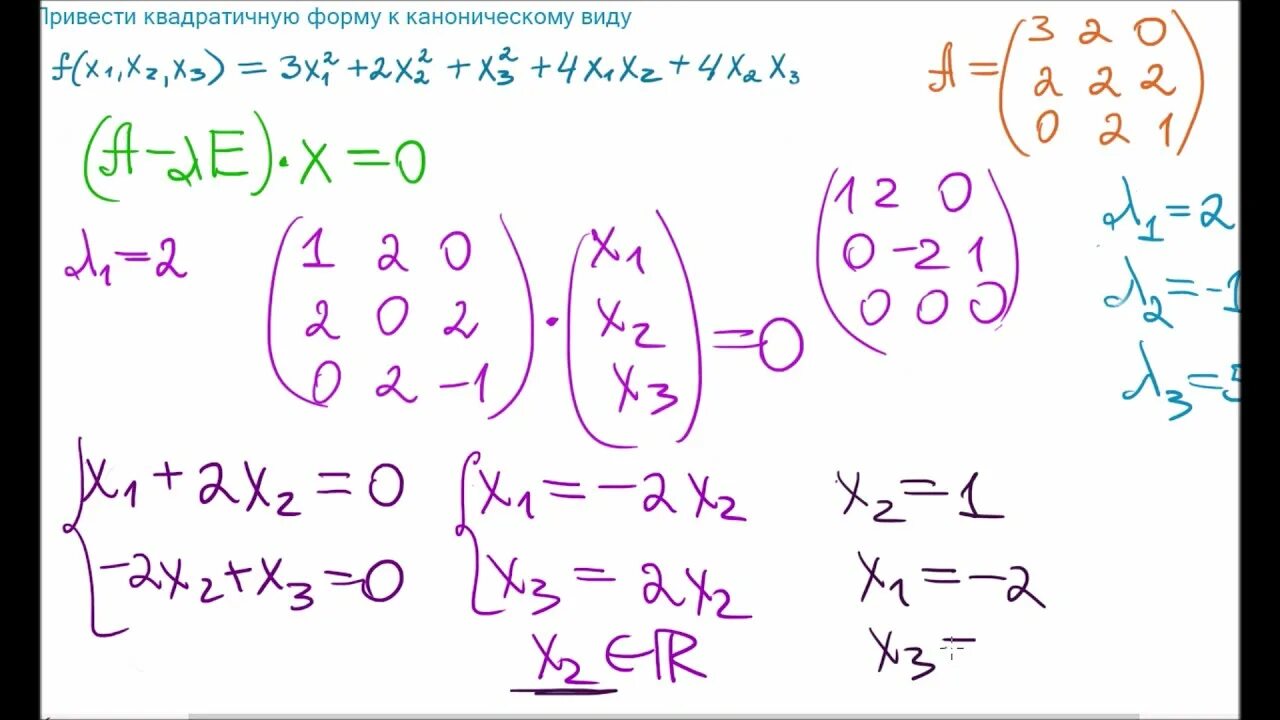 Привести квадратичную форму к каноническому виду
f(x₁,x₂,x₃) = 3x₁² + 2x₂² + x₃² + 4x₁x₂ + 4x₂x₃
A = (3 2 0
2 2 2
0 2 1)
(A - λE) · X = 0
λ₁ = 2
(1 2 0
2 0 2
0 2 -1) · (x₁
x₂
x₃) = 0
(1 2 0
0 -2 1
0 0 0)
λ₁ = 2
λ₂ = -1
λ₃ = 5
{x₁ + 2x₂ = 0
-2x₂ + x₃ = 0
{x₁ = -2x₂
x₃ = 2x₂
x₂ ∈ ℝ
x₂ = 1
x₁ = -2
x₃ =